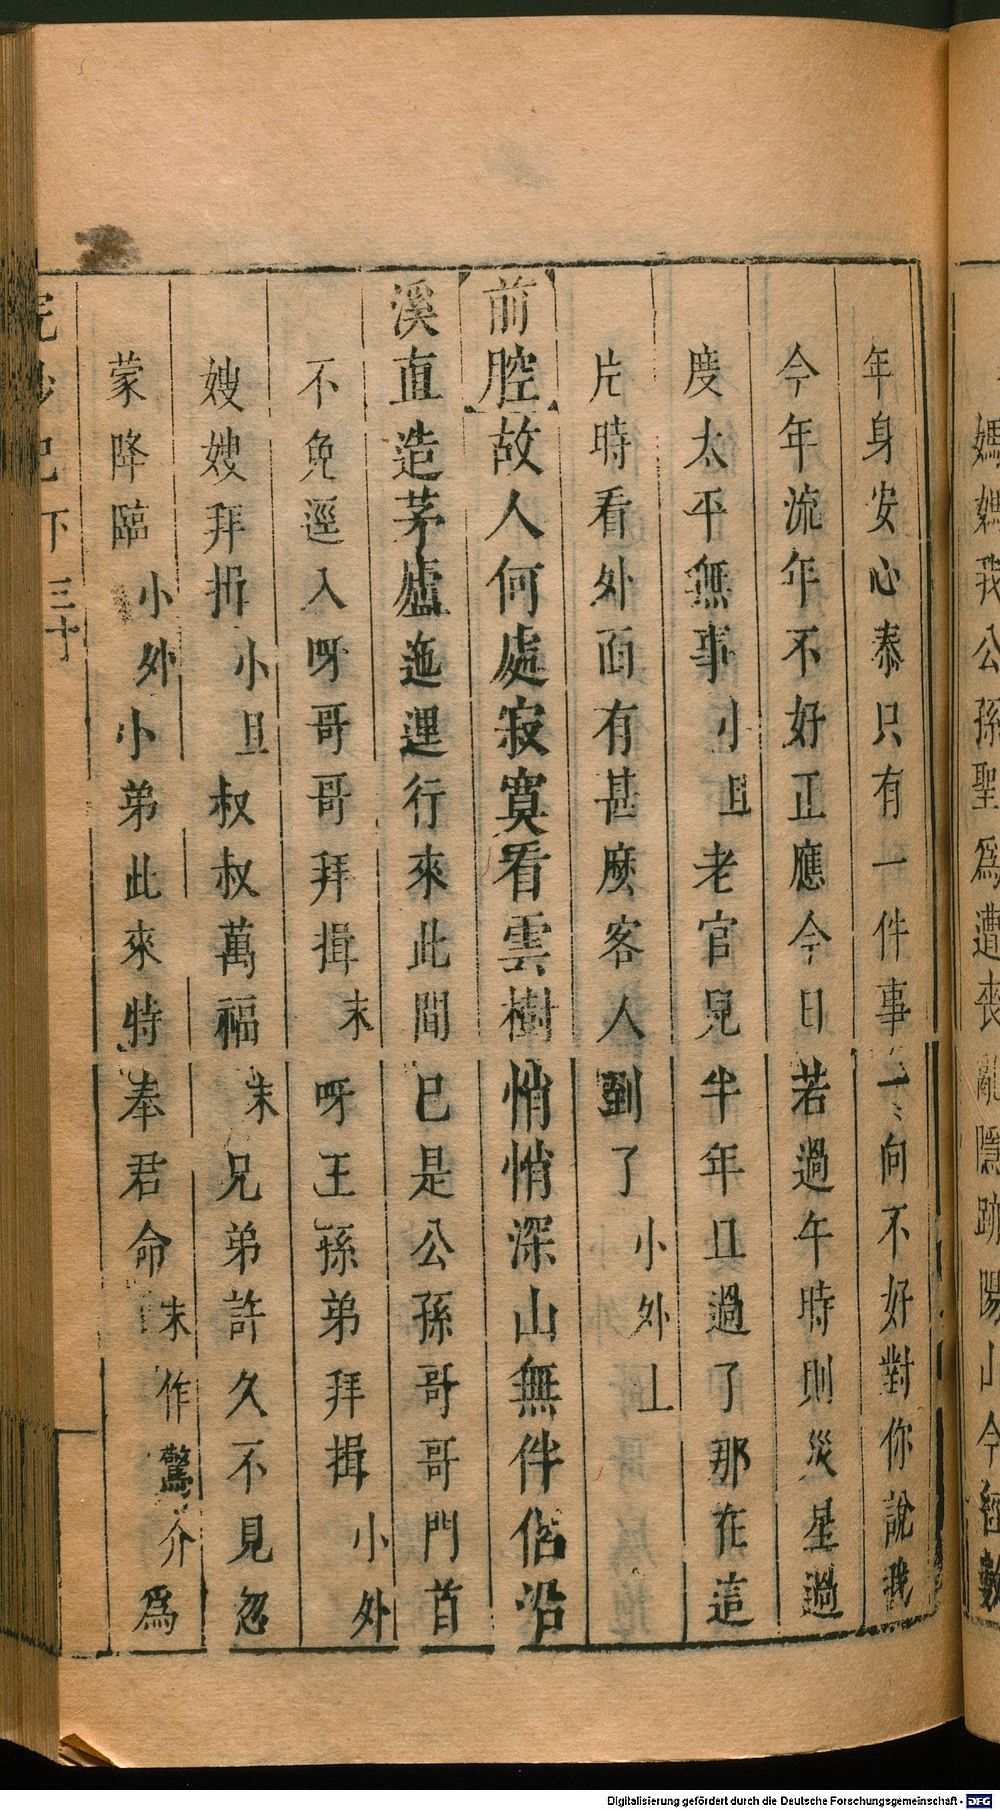 媽媽我公孫聖爲遭喪亂隱跡陽山今經數
年身安心泰只有一件事一向不好對你說我
今年流年不好正應今日若過午時則災星過
度太平無事小旦老官兒半年且過了那在這
片時看外面有甚麽客人到了小外上
前腔故人何處寂寞看雲樹悄悄深山無伴侣沿
溪直造茅廬迤邐行來此間已是公孫哥哥門首
不免逕入呀哥哥拜揖末呀王孫弟拜揖小外
嫂嫂拜揖小旦叔叔萬福末兄弟許久不見忽
蒙降臨小外小弟此來特奉君命末作驚介爲
浣紗記下 三十
Digitalisierung gefördert durch die Deutsche Forschungsgemeinschaft - DFG